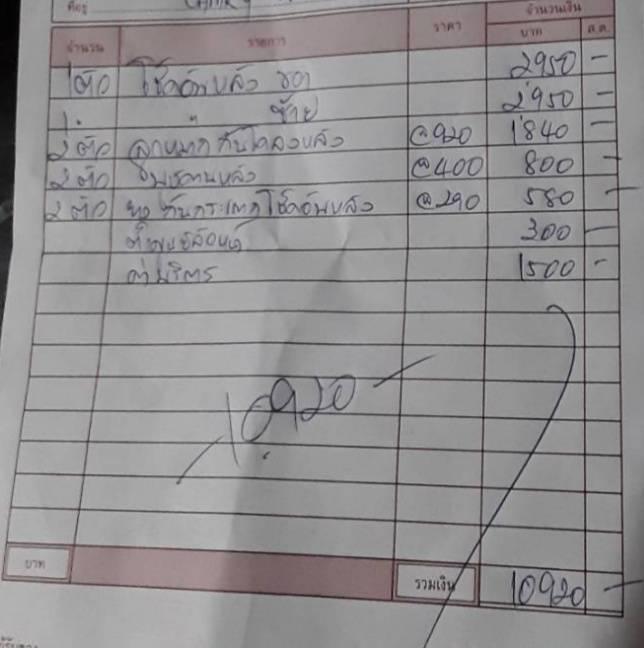 ที่อยู่
จำนวน รายการ ราคา จำนวนเงิน
บาท ส.ต.
1 ตัว โช๊คอัพหลัง ขวา 2950 –
1 " " ซ้าย 2950 –
2 ตัว ลูกหมากกันโคลงหลัง @920 1840 –
2 ตัว หลัง @400 800 –
2 ตัว กันกระแทกโช๊คอัพหลัง @290 580 –
300 –
ค่าบริการ 1500 –
10920 –
บาท รวมเงิน 10920 –